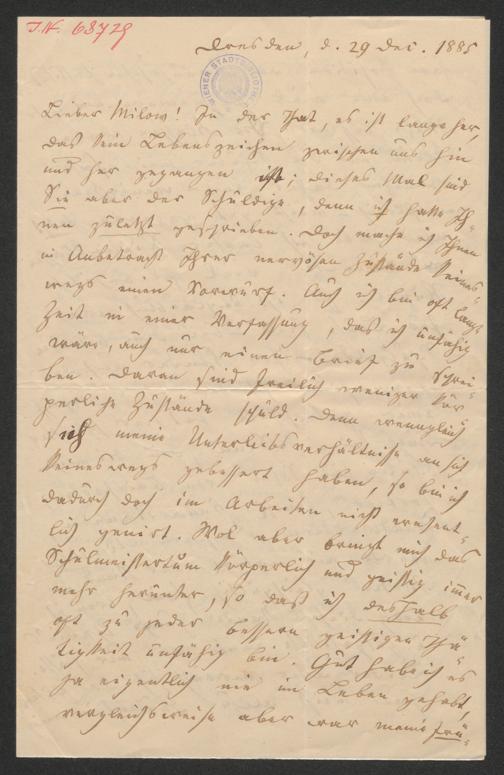 I.N. 68729
WIENER STADTBIBLIOTHEK
Dresden, d. 29 Dec. 1885
Lieber Milow! In der That, es ist lange her,
das kein Lebenszeichen zwischen uns hin
und her gegangen ist; dieses Mal sind
Sie aber der Schuldige, denn ich hatte Ih-
nen zuletzt geschrieben. Doch mache ich Ihnen
in Anbetracht Ihrer nervösen Zustände keines-
wegs einen Vorwurf. Auch ich bin oft lange
Zeit in einer Verfassung, das ich unfähig
wäre, auch nur einen Brief zu schrei-
ben. Daran sind freilich weniger kör-
perliche Zustände schuld. Denn wenngleich
sich meine Unterleibsverhältnisse an sich
keineswegs gebessert haben, so bin ich
dadurch doch im Arbeiten nicht wesent-
lich genirt. Wol aber bringt mich das
Schulmeistertum körperlich und geistig immer
mehr herunter, so daß ich deshalb
oft zu jeder bessern geistigen Thä-
tigkeit unfähig bin. Gut habe ich es
ja eigentlich nie im Leben gehabt,
vergleichsweise aber war meine frü-